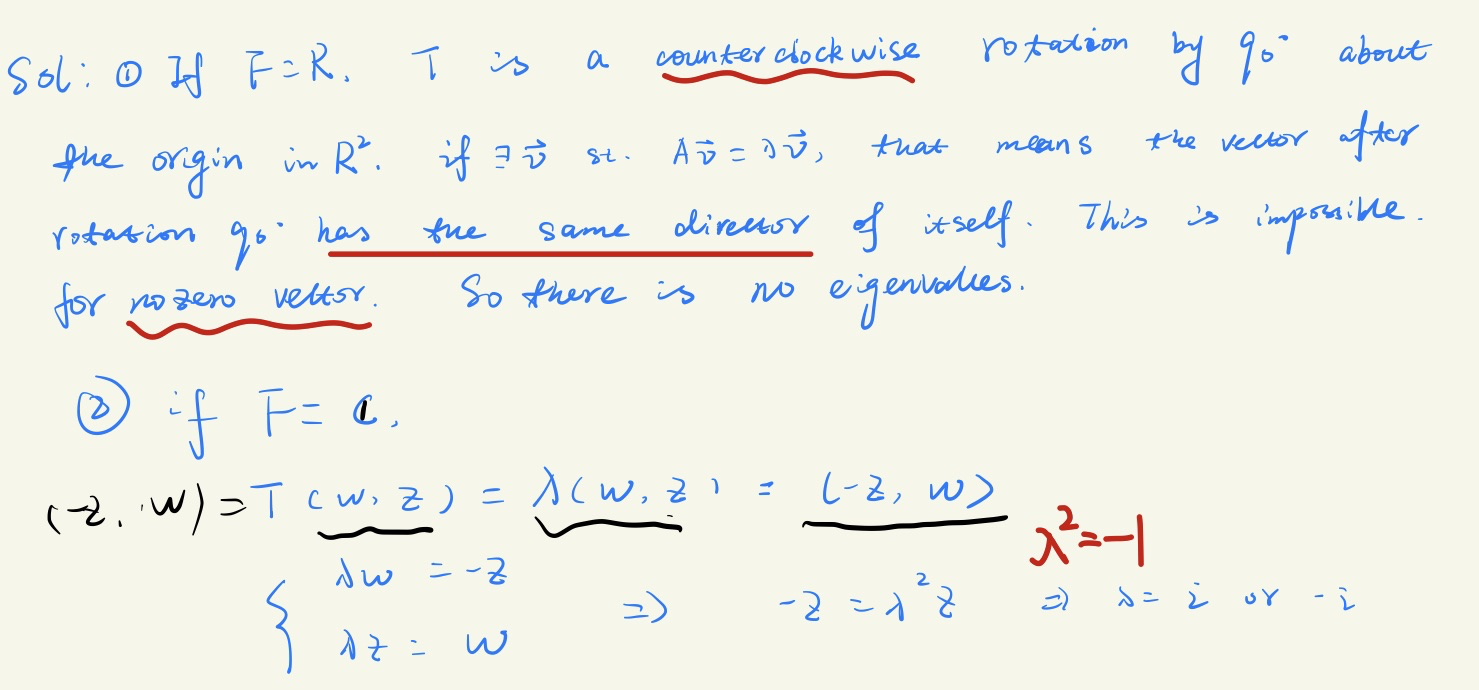 Sol: ① If F=R. T is a counterclockwise rotation by 90° about
the origin in R². if ∃ v⃗ st. Av⃗ = λv⃗, that means the vector after
rotation 90° has the same director of itself. This is impossible.
for nozero vector. So there is no eigenvalues.
② if F= C,
(-z, w) = T (w, z) = λ(w, z) = (-z, w)
λ²=-1
{ λw = -z
λz = w ⇒ -z = λ²z ⇒ λ= i or -i